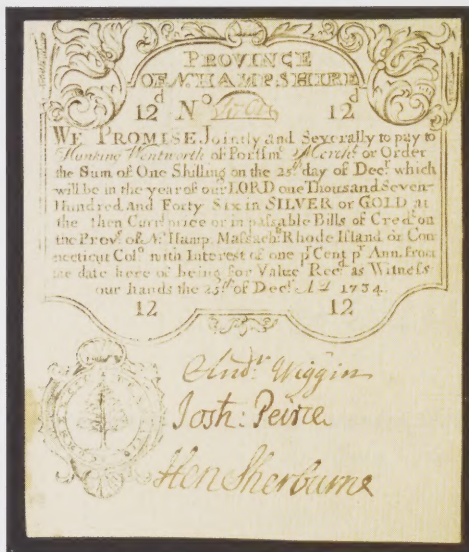 PROVINCE
OF N. HAMPSHIRE
12d No 12d
WE PROMISE Jointly and Severally to pay to
Hunking Wentworth of Portsmo Mercht or Order
the Sum of One Shilling on the 25th day of Decr which
will be in the year of our LORD one Thousand Seven
Hundred and Forty Six in SILVER or GOLD at
the then Currt price or in passable Bills of Credt on
the Prove of N. Hamp. Massachs Rhode Island or Con
necticut Colo with Interest of one pr Cent pr Ann. from
the date here of being for Value Recd as Witness
our hands the 25th of Decr AD 1734.
12 12
Andr Wiggin
Josh: Peirce
Hen Sherburne